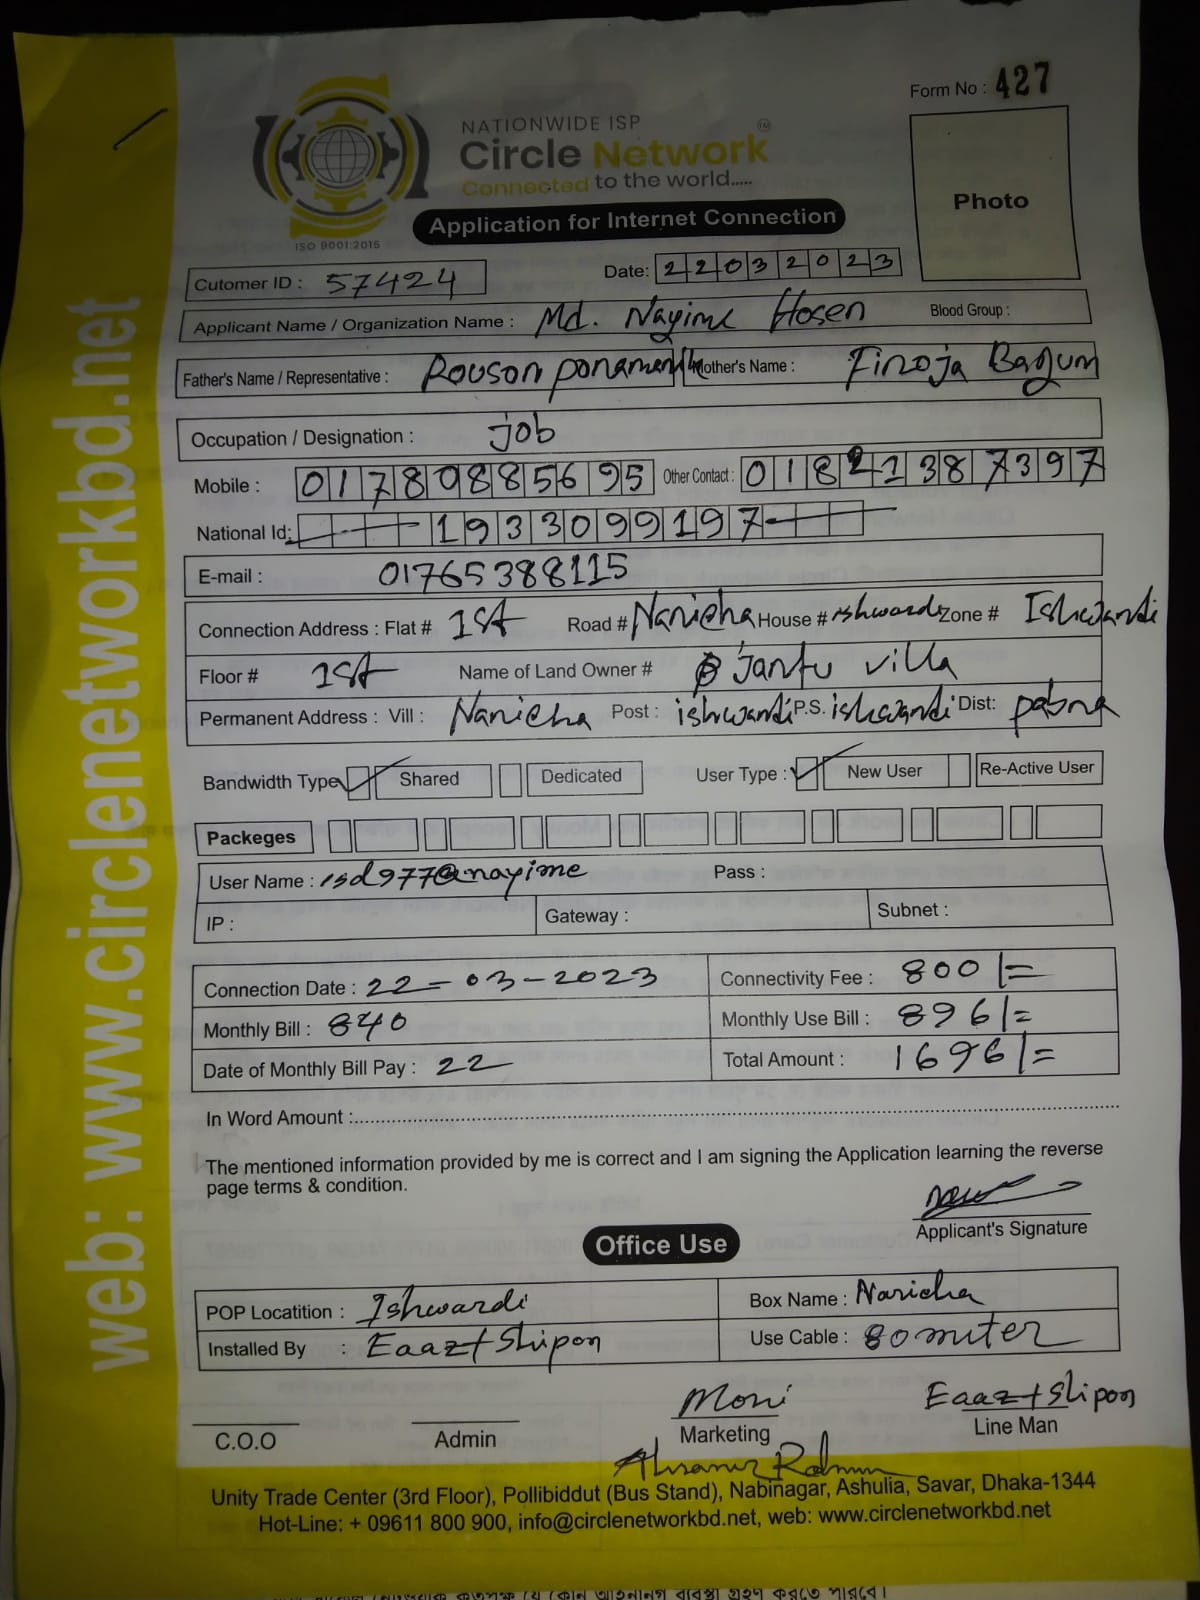 Form No : 427
NATIONWIDE ISP
Circle Network TM
Connected to the world.....
ISO 9001:2015
Application for Internet Connection
Photo
Cutomer ID : 57424 Date: 22032023
Applicant Name / Organization Name : Md. Nayime Hosen Blood Group :
Father's Name / Representative : Rouson Mother's Name : Firoja Bagum
Occupation / Designation : job
Mobile : 01789885695 Other Contact : 01821387397
National Id: 1933099197
E-mail : 01765388115
Connection Address : Flat # 1st Road # Naricha House # ishwardi Zone # Ishwardi
Floor # 1st Name of Land Owner # Jantu villa
Permanent Address : Vill : Naricha Post : ishwardi P.S. ishwardi Dist: pabna
Bandwidth Type Shared Dedicated User Type : New User Re-Active User
Packeges
User Name : isd977@nayime Pass :
IP : Gateway : Subnet :
Connection Date : 22-03-2023 Connectivity Fee : 800/=
Monthly Bill : 840 Monthly Use Bill : 896/=
Date of Monthly Bill Pay : 22 Total Amount : 1696/=
In Word Amount :
The mentioned information provided by me is correct and I am signing the Application learning the reverse
page terms & condition.
Applicant's Signature
Office Use
POP Locatition : Ishwardi Box Name : Naricha
Installed By : Eaaz+Shipon Use Cable : 80 miter
Moni Eaaz+Shipon
C.O.O Admin Marketing Line Man
Unity Trade Center (3rd Floor), Pollibiddut (Bus Stand), Nabinagar, Ashulia, Savar, Dhaka-1344
Hot-Line: + 09611 800 900, info@circlenetworkbd.net, web: www.circlenetworkbd.net
web: www.circlenetworkbd.net